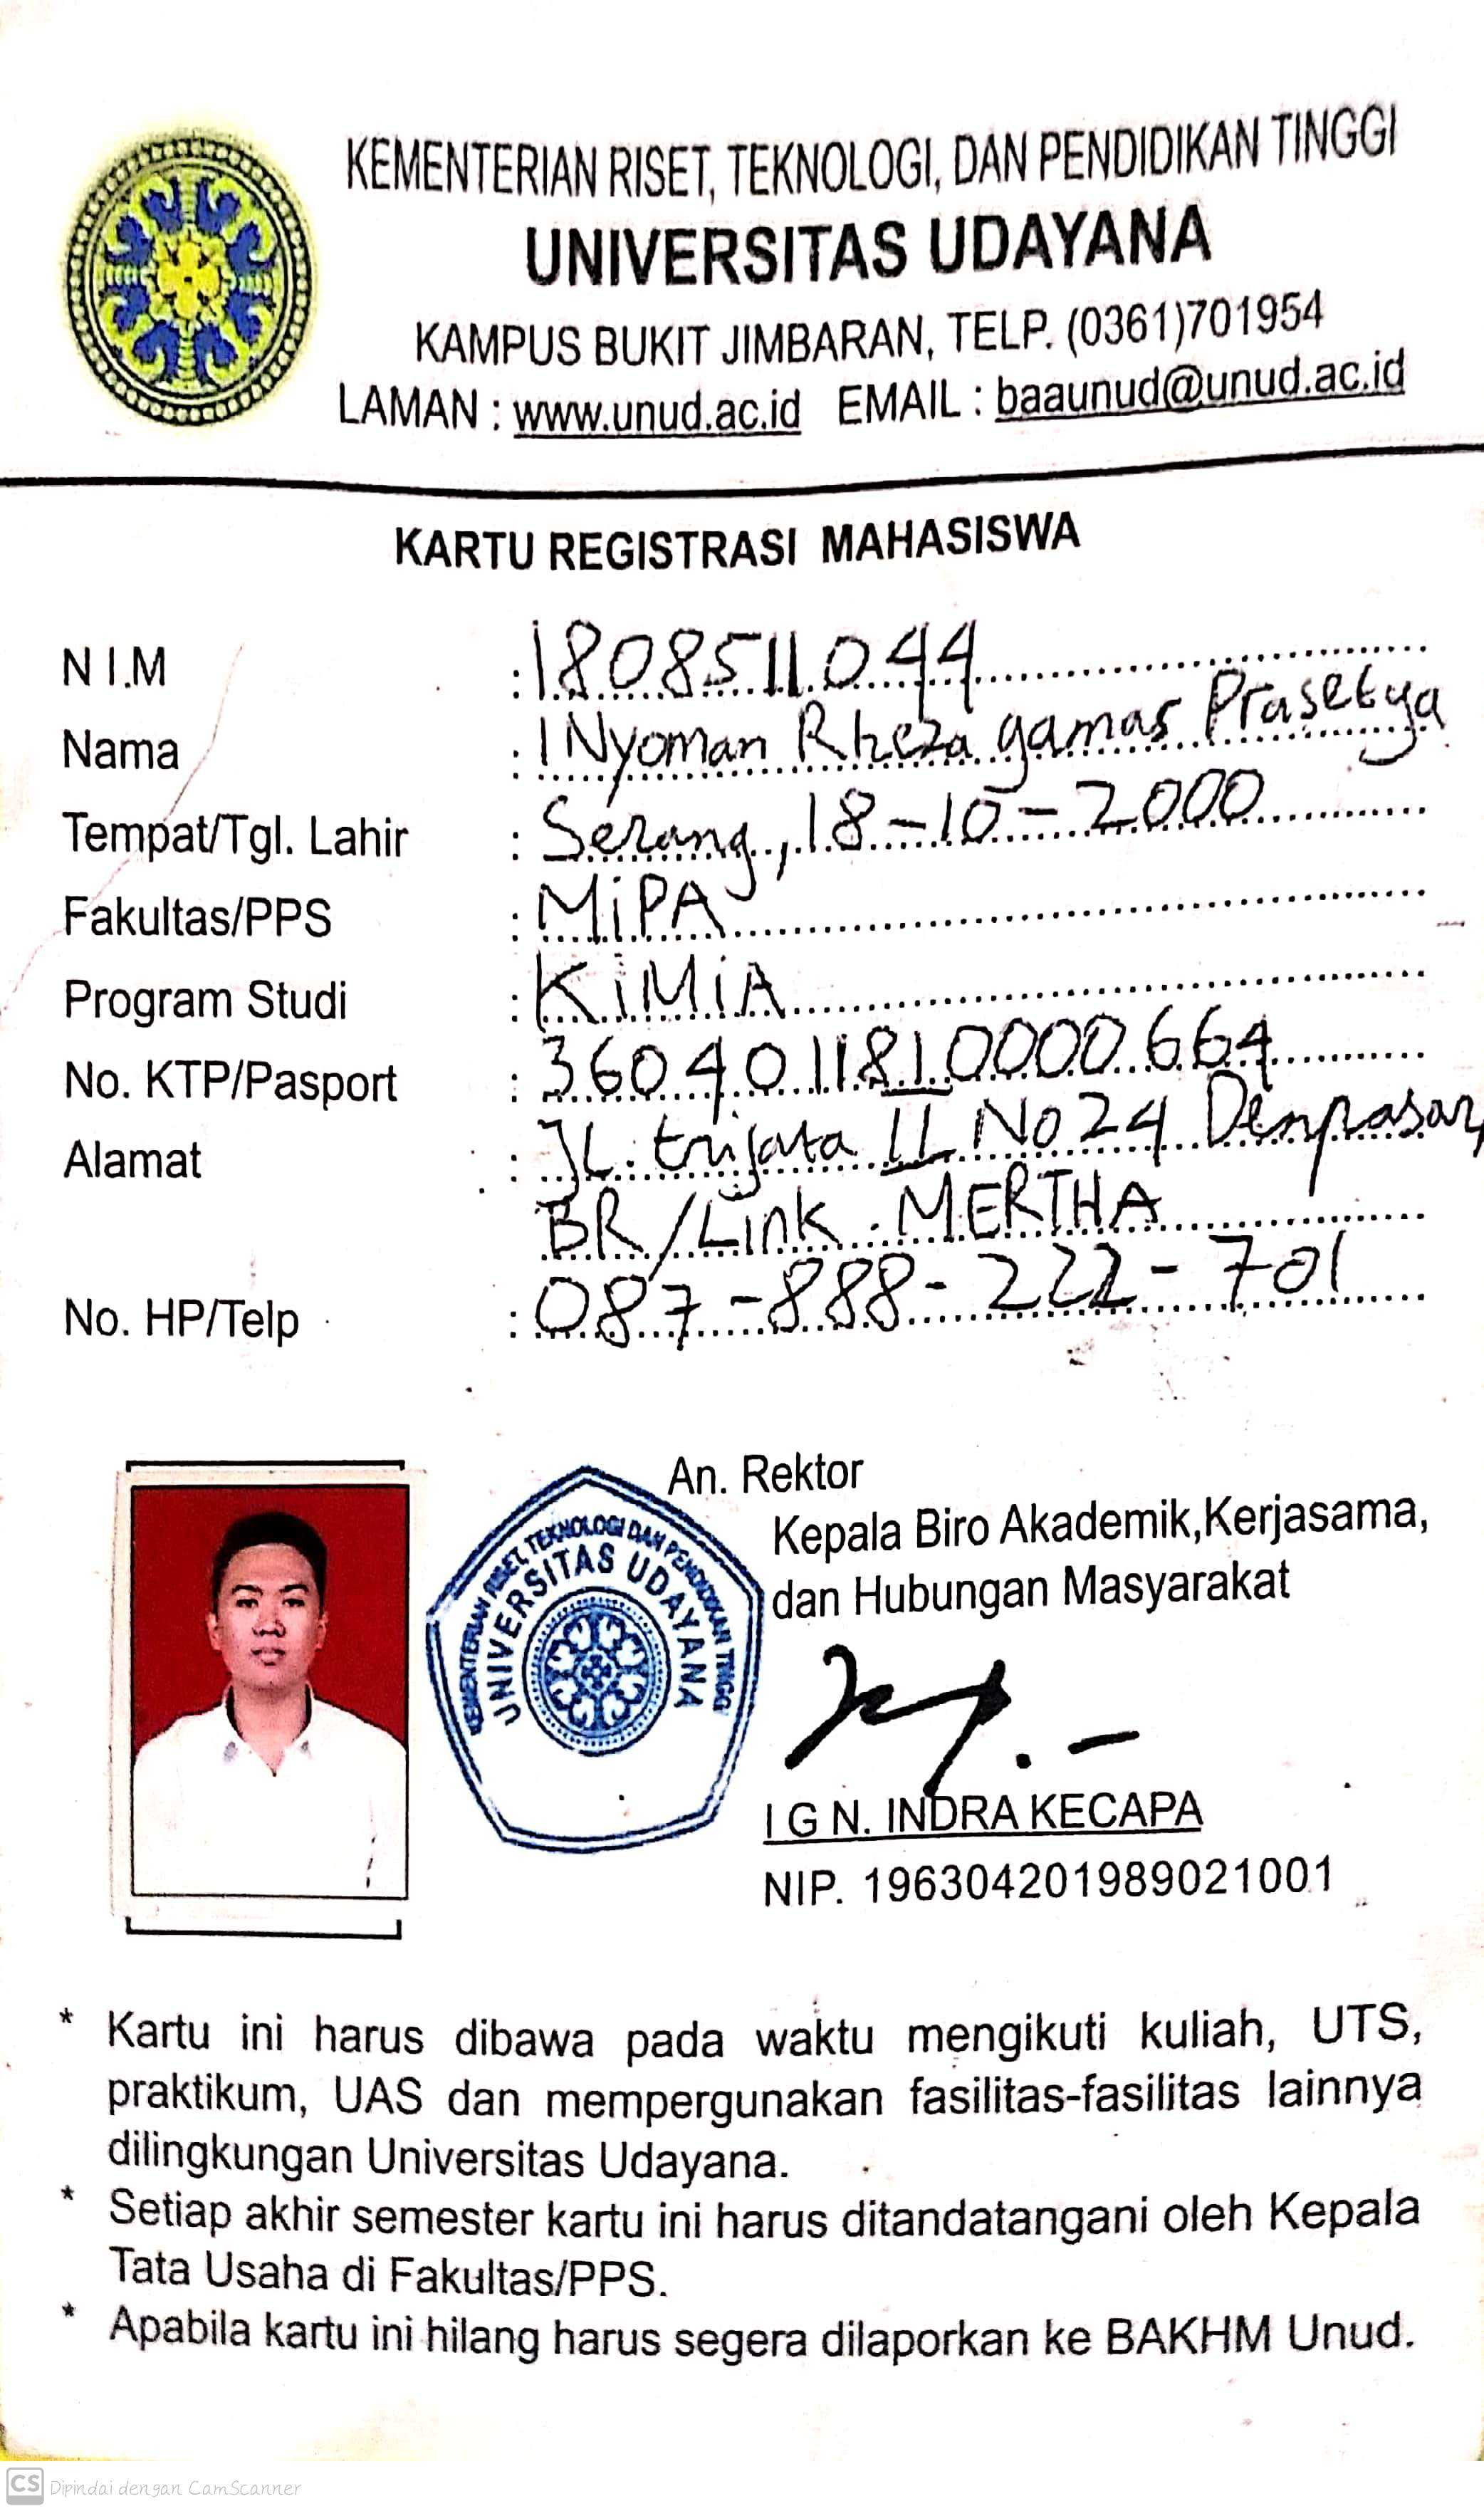 KEMENTERIAN RISET, TEKNOLOGI, DAN PENDIDIKAN TINGGI
UNIVERSITAS UDAYANA
KAMPUS BUKIT JIMBARAN, TELP. (0361)701954
LAMAN : www.unud.ac.id EMAIL : baaunud@unud.ac.id
KARTU REGISTRASI MAHASISWA
N I.M : 1808511044
Nama : I Nyoman Rheza gamas Prasetya
Tempat/Tgl. Lahir : Serang, 18-10-2000
Fakultas/PPS : MiPA
Program Studi : KiMiA
No. KTP/Pasport : 3604011810000664
Alamat : JL. trijata II No 24 Denpasar,
BR/Link. MERTHA
No. HP/Telp : 087-888-222-701
An. Rektor
Kepala Biro Akademik,Kerjasama,
dan Hubungan Masyarakat
KEMENTERIAN RISET, TEKNOLOGI DAN PENDIDIKAN TINGGI
UNIVERSITAS UDAYANA
I G N. INDRA KECAPA
NIP. 196304201989021001
* Kartu ini harus dibawa pada waktu mengikuti kuliah, UTS,
praktikum, UAS dan mempergunakan fasilitas-fasilitas lainnya
dilingkungan Universitas Udayana.
* Setiap akhir semester kartu ini harus ditandatangani oleh Kepala
Tata Usaha di Fakultas/PPS.
* Apabila kartu ini hilang harus segera dilaporkan ke BAKHM Unud.
CS Dipindai dengan CamScanner